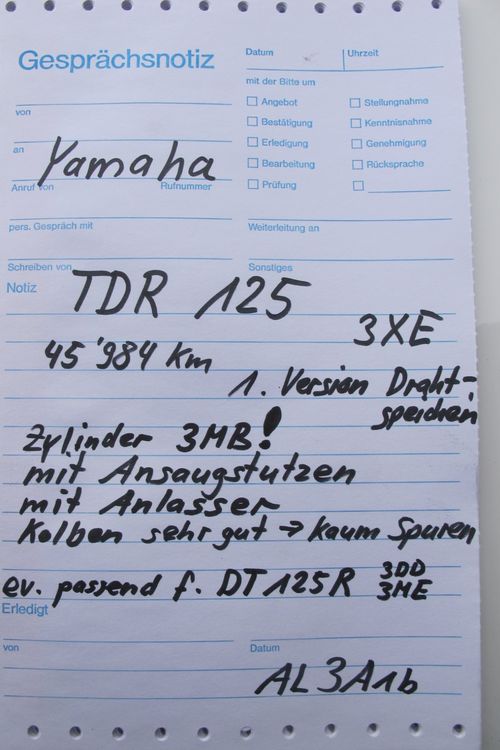 Gesprächsnotiz
Datum
Uhrzeit
mit der Bitte um
Angebot
Stellungnahme
von
Bestätigung
Kenntnisnahme
Erledigung
Genehmigung
an
Yamaha
Bearbeitung
Rücksprache
Anruf von
Rufnummer
Prüfung
pers. Gespräch mit
Weiterleitung an
Schreiben von
Sonstiges
Notiz
TDR 125
3XE
45'984 Km
1. Version Draht-
speichen
Zylinder 3MB!
mit Ansaugstutzen
mit Anlasser
Kolben sehr gut → kaum Spuren
ev. passend f. DT 125R 3DD
3ME
Erledigt
von
Datum
AL3A1b